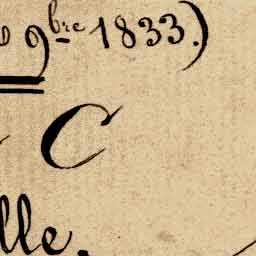 9bre 1833.)
C
lle.